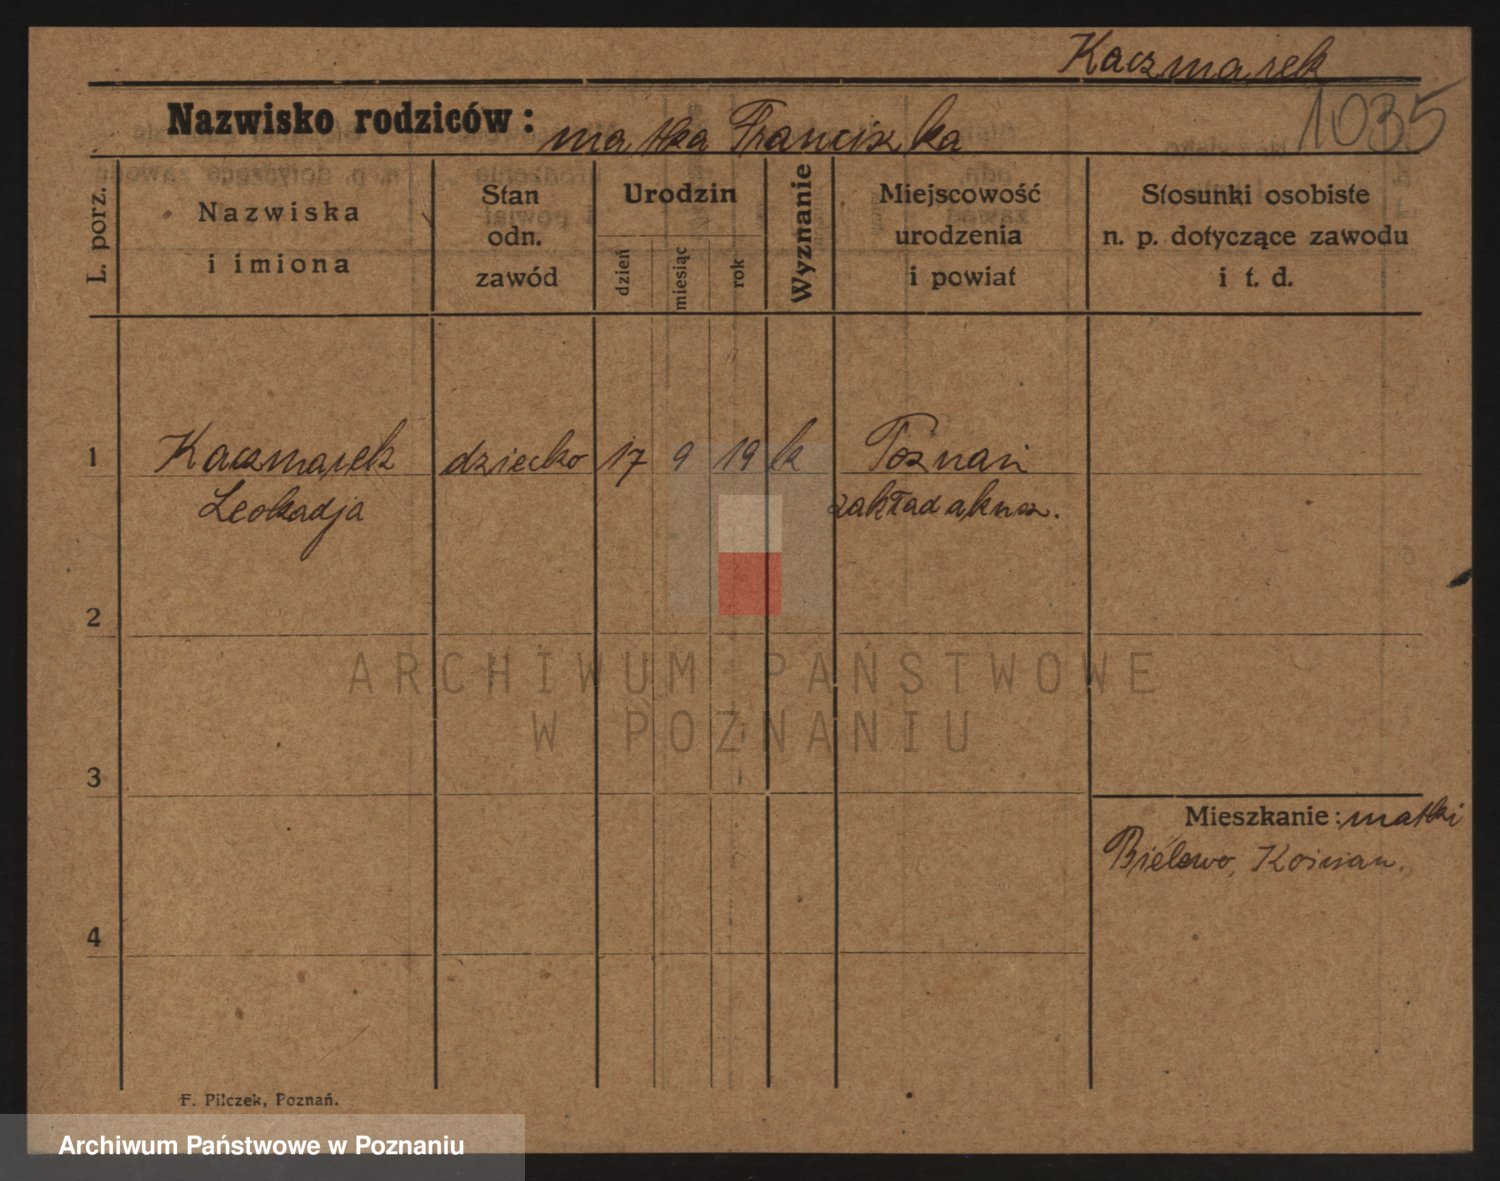 Kaczmarek
1035
Nazwisko rodziców: matka Franciszka
L. porz.
Nazwiska
i imiona
Stan
odn.
zawód
Urodzin
dzień
miesiąc
rok
Wyznanie
Miejscowość
urodzenia
i powiat
Stosunki osobiste
n. p. dotyczące zawodu
i t. d.
1 Kaczmarek dziecko 17 9 19 k Poznań
Leokadja zakład akusz.
2
3
Mieszkanie: matki
Bielewo, Kościan.
4
F. Pilczek, Poznań.
ARCHIWUM PAŃSTWOWE
W POZNANIU
Archiwum Państwowe w Poznaniu